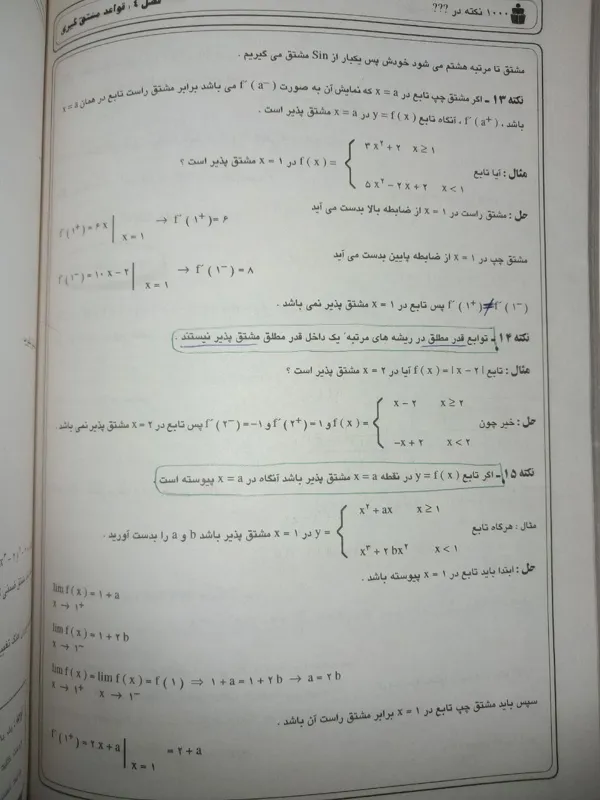 ۱۰۰۰ نکته در ???
فصل ٤ ، قواعد مشتق گیری
مشتق تا مرتبه هشتم می شود خودش پس یکبار از Sin مشتق می گیریم .
نکته ۱۳ - اگر مشتق چپ تابع در x = a که نمایش آن به صورت f´ ( a⁻ ) می باشد برابر مشتق راست تابع در همان x = a
باشد ، f´ ( a⁺ ) ، آنگاه تابع y = f ( x ) در x = a مشتق پذیر است .
مثال : آیا تابع f ( x ) = { ۳ x² + ۲ x ≥ ۱
۵ x² − ۲ x + ۲ x < ۱ در x = ۱ مشتق پذیر است ؟
حل : مشتق راست در x = ۱ از ضابطه بالا بدست می آید
f´ ( ۱⁺ ) = ۶ x | x = ۱ → f´ ( ۱⁺ ) = ۶
مشتق چپ در x = ۱ از ضابطه پایین بدست می آید
f´ ( ۱⁻ ) = ۱۰ x − ۲ | x = ۱ → f´ ( ۱⁻ ) = ۸
f´ ( ۱⁺ ) ≠ f´ ( ۱⁻ ) پس تابع در x = ۱ مشتق پذیر نمی باشد .
نکته ۱۴ - توابع قدر مطلق در ریشه های مرتبهٔ یک داخل قدر مطلق مشتق پذیر نیستند .
مثال : تابع f ( x ) = | x − ۲ | آیا در x = ۲ مشتق پذیر است ؟
حل : خیر چون f ( x ) = { x − ۲ x ≥ ۲
−x + ۲ x < ۲ و f´ ( ۲⁺ ) = ۱ و f´ ( ۲⁻ ) = −۱ پس تابع در x = ۲ مشتق پذیر نمی باشد .
نکته ۱۵ - اگر تابع y = f ( x ) در نقطه x = a مشتق پذیر باشد آنگاه در x = a پیوسته است .
مثال : هرگاه تابع y = { x² + ax x ≥ ۱
x³ + ۲ bx² x < ۱ در x = ۱ مشتق پذیر باشد a و b را بدست آورید .
حل : ابتدا باید تابع در x = ۱ پیوسته باشد .
lim f ( x ) = ۱ + a
x → ۱⁺
lim f ( x ) = ۱ + ۲ b
x → ۱⁻
lim f ( x ) = lim f ( x ) = f ( ۱ ) ⇒ ۱ + a = ۱ + ۲ b → a = ۲ b
x → ۱⁺ x → ۱⁻
سپس باید مشتق چپ تابع در x = ۱ برابر مشتق راست آن باشد .
f´ ( ۱⁺ ) = ۲ x + a | x = ۱ = ۲ + a